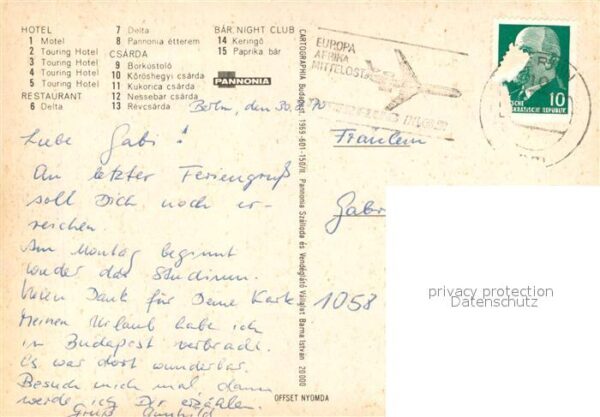 HOTEL
1 Motel
2 Touring Hotel
3 Touring Hotel
4 Touring Hotel
5 Touring Hotel
RESTAURANT
6 Delta
7 Delta
8 Pannonia étterem
CSÁRDA
9 Borkóstoló
10 Kőröshegyi csárda
11 Kukorica csárda
12 Nessebar csárda
13 Révcsárda
BÁR, NIGHT CLUB
14 Keringő
15 Paprika bár
PANNONIA
CARTOGRAPHIA Budapest, 1969-601-150/II. Pannonia Szálloda és Vendéglátó Vállalat Barna István 20 000
EUROPA
AFRIKA
MITTELOST
10
DEMOKRATISCHE REPUBLIK
Berlin, den 30. 70
Liebe Gabi!
An letzter Feriengruß
soll Dich noch er-
reichen.
Am Montag beginnt
wieder das Studium.
Vielen Dank für Deine Karte
Meinen Urlaub habe ich
in Budapest verbracht.
Es war dort wunderbar.
Besuch mich mal dann
werde ich Dir erzählen.
Gruß
Fräulein
Gabr
1058
privacy protection
Datenschutz
OFFSET NYOMDA